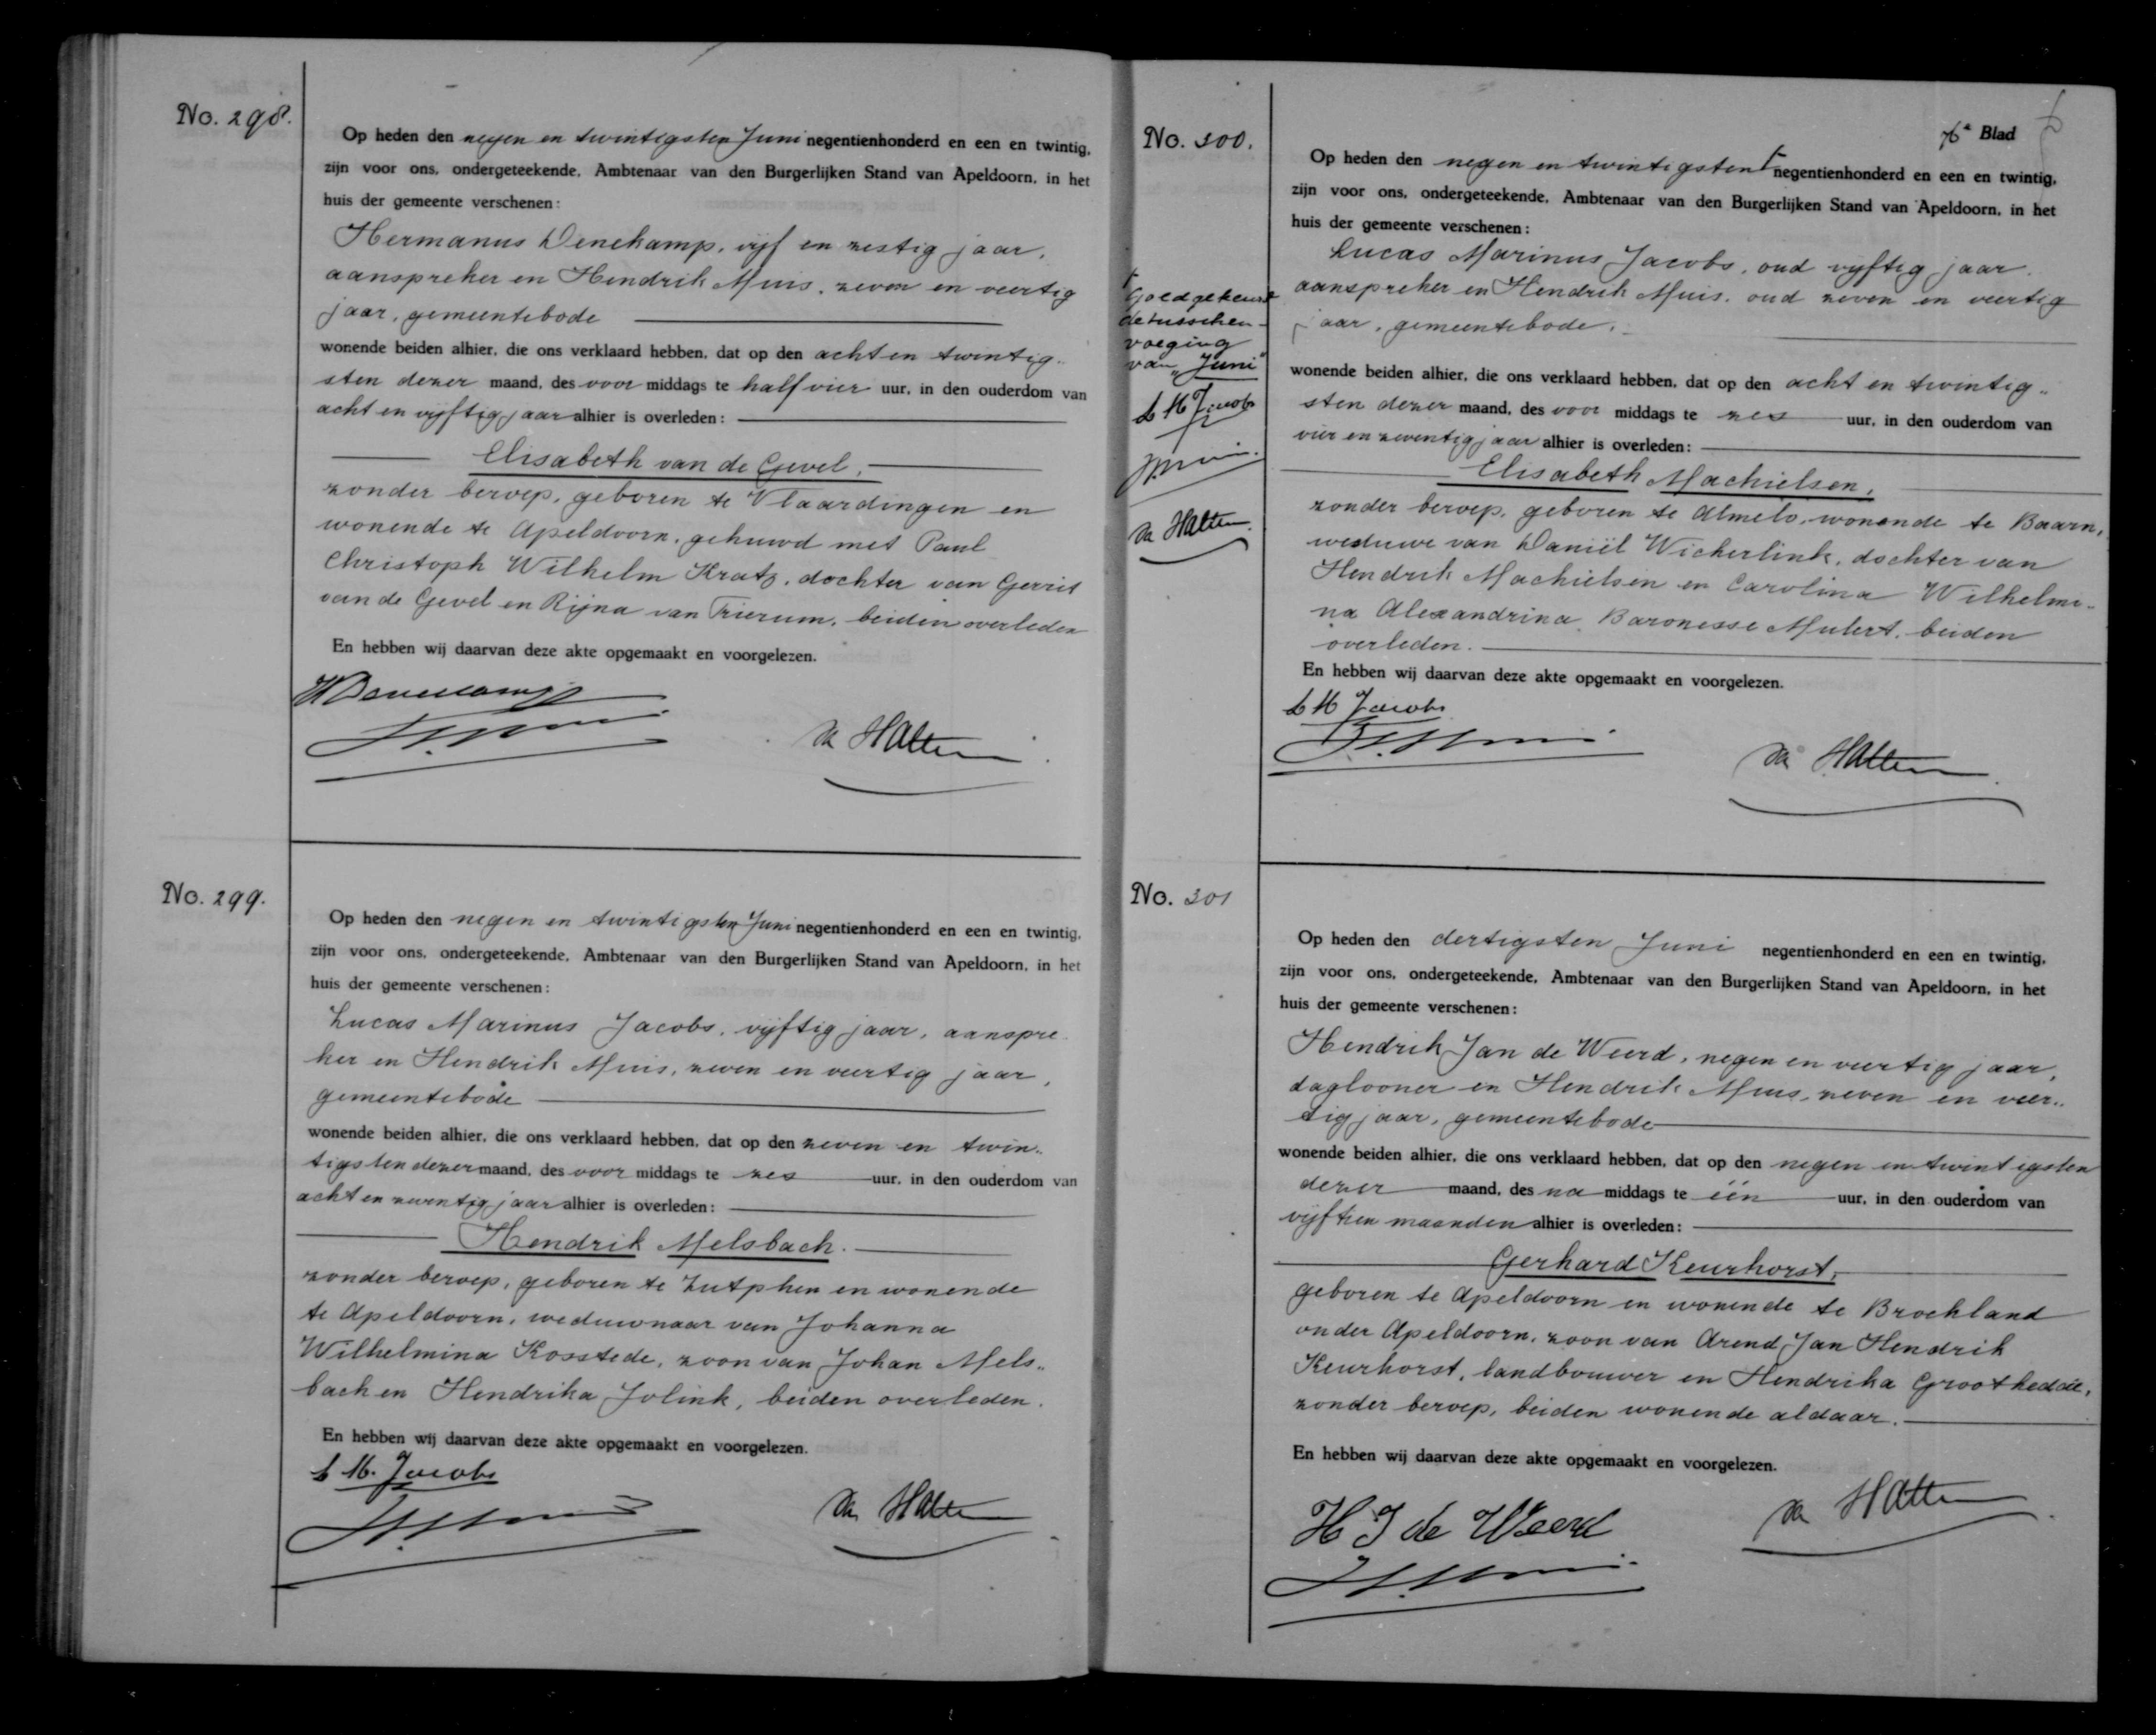 No. 298.
Op heden den negen en twintigsten Juni negentienhonderd en een en twintig,
zijn voor ons, ondergeteekende, Ambtenaar van den Burgerlijken Stand van Apeldoorn, in het
huis der gemeente verschenen:
Hermanus Denekamp, vijf en zestig jaar,
aanspreker en Hendrik Muis, zeven en veertig
jaar, gemeentebode
wonende beiden alhier, die ons verklaard hebben, dat op den acht en twintig„
sten dezer maand, des voor middags te half vier uur, in den ouderdom van
acht en vijftig jaar alhier is overleden:
Elisabeth van de Gevel,
zonder beroep, geboren te Vlaardingen en
wonende te Apeldoorn, gehuwd met Paul
Christoph Wilhelm Kratz, dochter van Gerrit
van de Gevel en Rijna van Trierum, beiden overleden
En hebben wij daarvan deze akte opgemaakt en voorgelezen.
HDenekamp
No. 299.
Op heden den negen en twintigsten Juni negentienhonderd en een en twintig,
zijn voor ons, ondergeteekende, Ambtenaar van den Burgerlijken Stand van Apeldoorn, in het
huis der gemeente verschenen:
Lucas Marinus Jacobs, vijftig jaar, aanspre„
ker en Hendrik Muis, zeven en veertig jaar,
gemeentebode
wonende beiden alhier, die ons verklaard hebben, dat op den zeven en twin„
tigsten dezer maand, des voor middags te zes uur, in den ouderdom van
acht en zeventig jaar alhier is overleden:
Hendrik Melsbach.
zonder beroep, geboren te Zutphen en wonende
te Apeldoorn, weduwnaar van Johanna
Wilhelmina Kosstede, zoon van Johan Mels„
bach en Hendrika Jolink, beiden overleden.
En hebben wij daarvan deze akte opgemaakt en voorgelezen.
L M. Jacobs
76e Blad
No. 300.
Op heden den negen en twintigsten negentienhonderd en een en twintig,
zijn voor ons, ondergeteekende, Ambtenaar van den Burgerlijken Stand van Apeldoorn, in het
huis der gemeente verschenen:
Lucas Marinus Jacobs, oud vijftig jaar.
aanspreker en Hendrik Muis, oud zeven en veertig
jaar, gemeentebode.
wonende beiden alhier, die ons verklaard hebben, dat op den acht en twintig„
sten dezer maand, des voor middags te zes uur, in den ouderdom van
vier en zeventig jaar alhier is overleden:
Elisabeth Machielsen,
zonder beroep, geboren te Almelo, wonende te Baarn,
weduwe van Daniël Wicherlink, dochter van
Hendrik Machielsen en Carolina Wilhelmi„
na Alexandrina Baronesse Mulert, beiden
overleden.
En hebben wij daarvan deze akte opgemaakt en voorgelezen.
L M Jacobs
Goedgekeurd
de tusschen„
voeging
van „Juni"
L M Jacobs
No. 301
Op heden den dertigsten Juni negentienhonderd en een en twintig,
zijn voor ons, ondergeteekende, Ambtenaar van den Burgerlijken Stand van Apeldoorn, in het
huis der gemeente verschenen:
Hendrik Jan de Weerd, negen en veertig jaar,
daglooner en Hendrik Muis, zeven en veer„
tig jaar, gemeentebode
wonende beiden alhier, die ons verklaard hebben, dat op den negen en twintigsten
dezer maand, des na middags te één uur, in den ouderdom van
vijftien maanden alhier is overleden:
Gerhard Keurhorst,
geboren te Apeldoorn en wonende te Broekland
onder Apeldoorn, zoon van Arend Jan Hendrik
Keurhorst, landbouwer en Hendrika Groothedde,
zonder beroep, beiden wonende aldaar.
En hebben wij daarvan deze akte opgemaakt en voorgelezen.
H J de Weerd